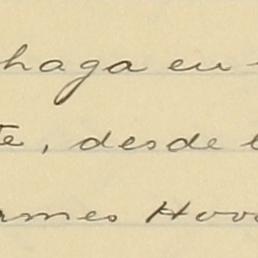 haga en
te, desde
rmes Hoo